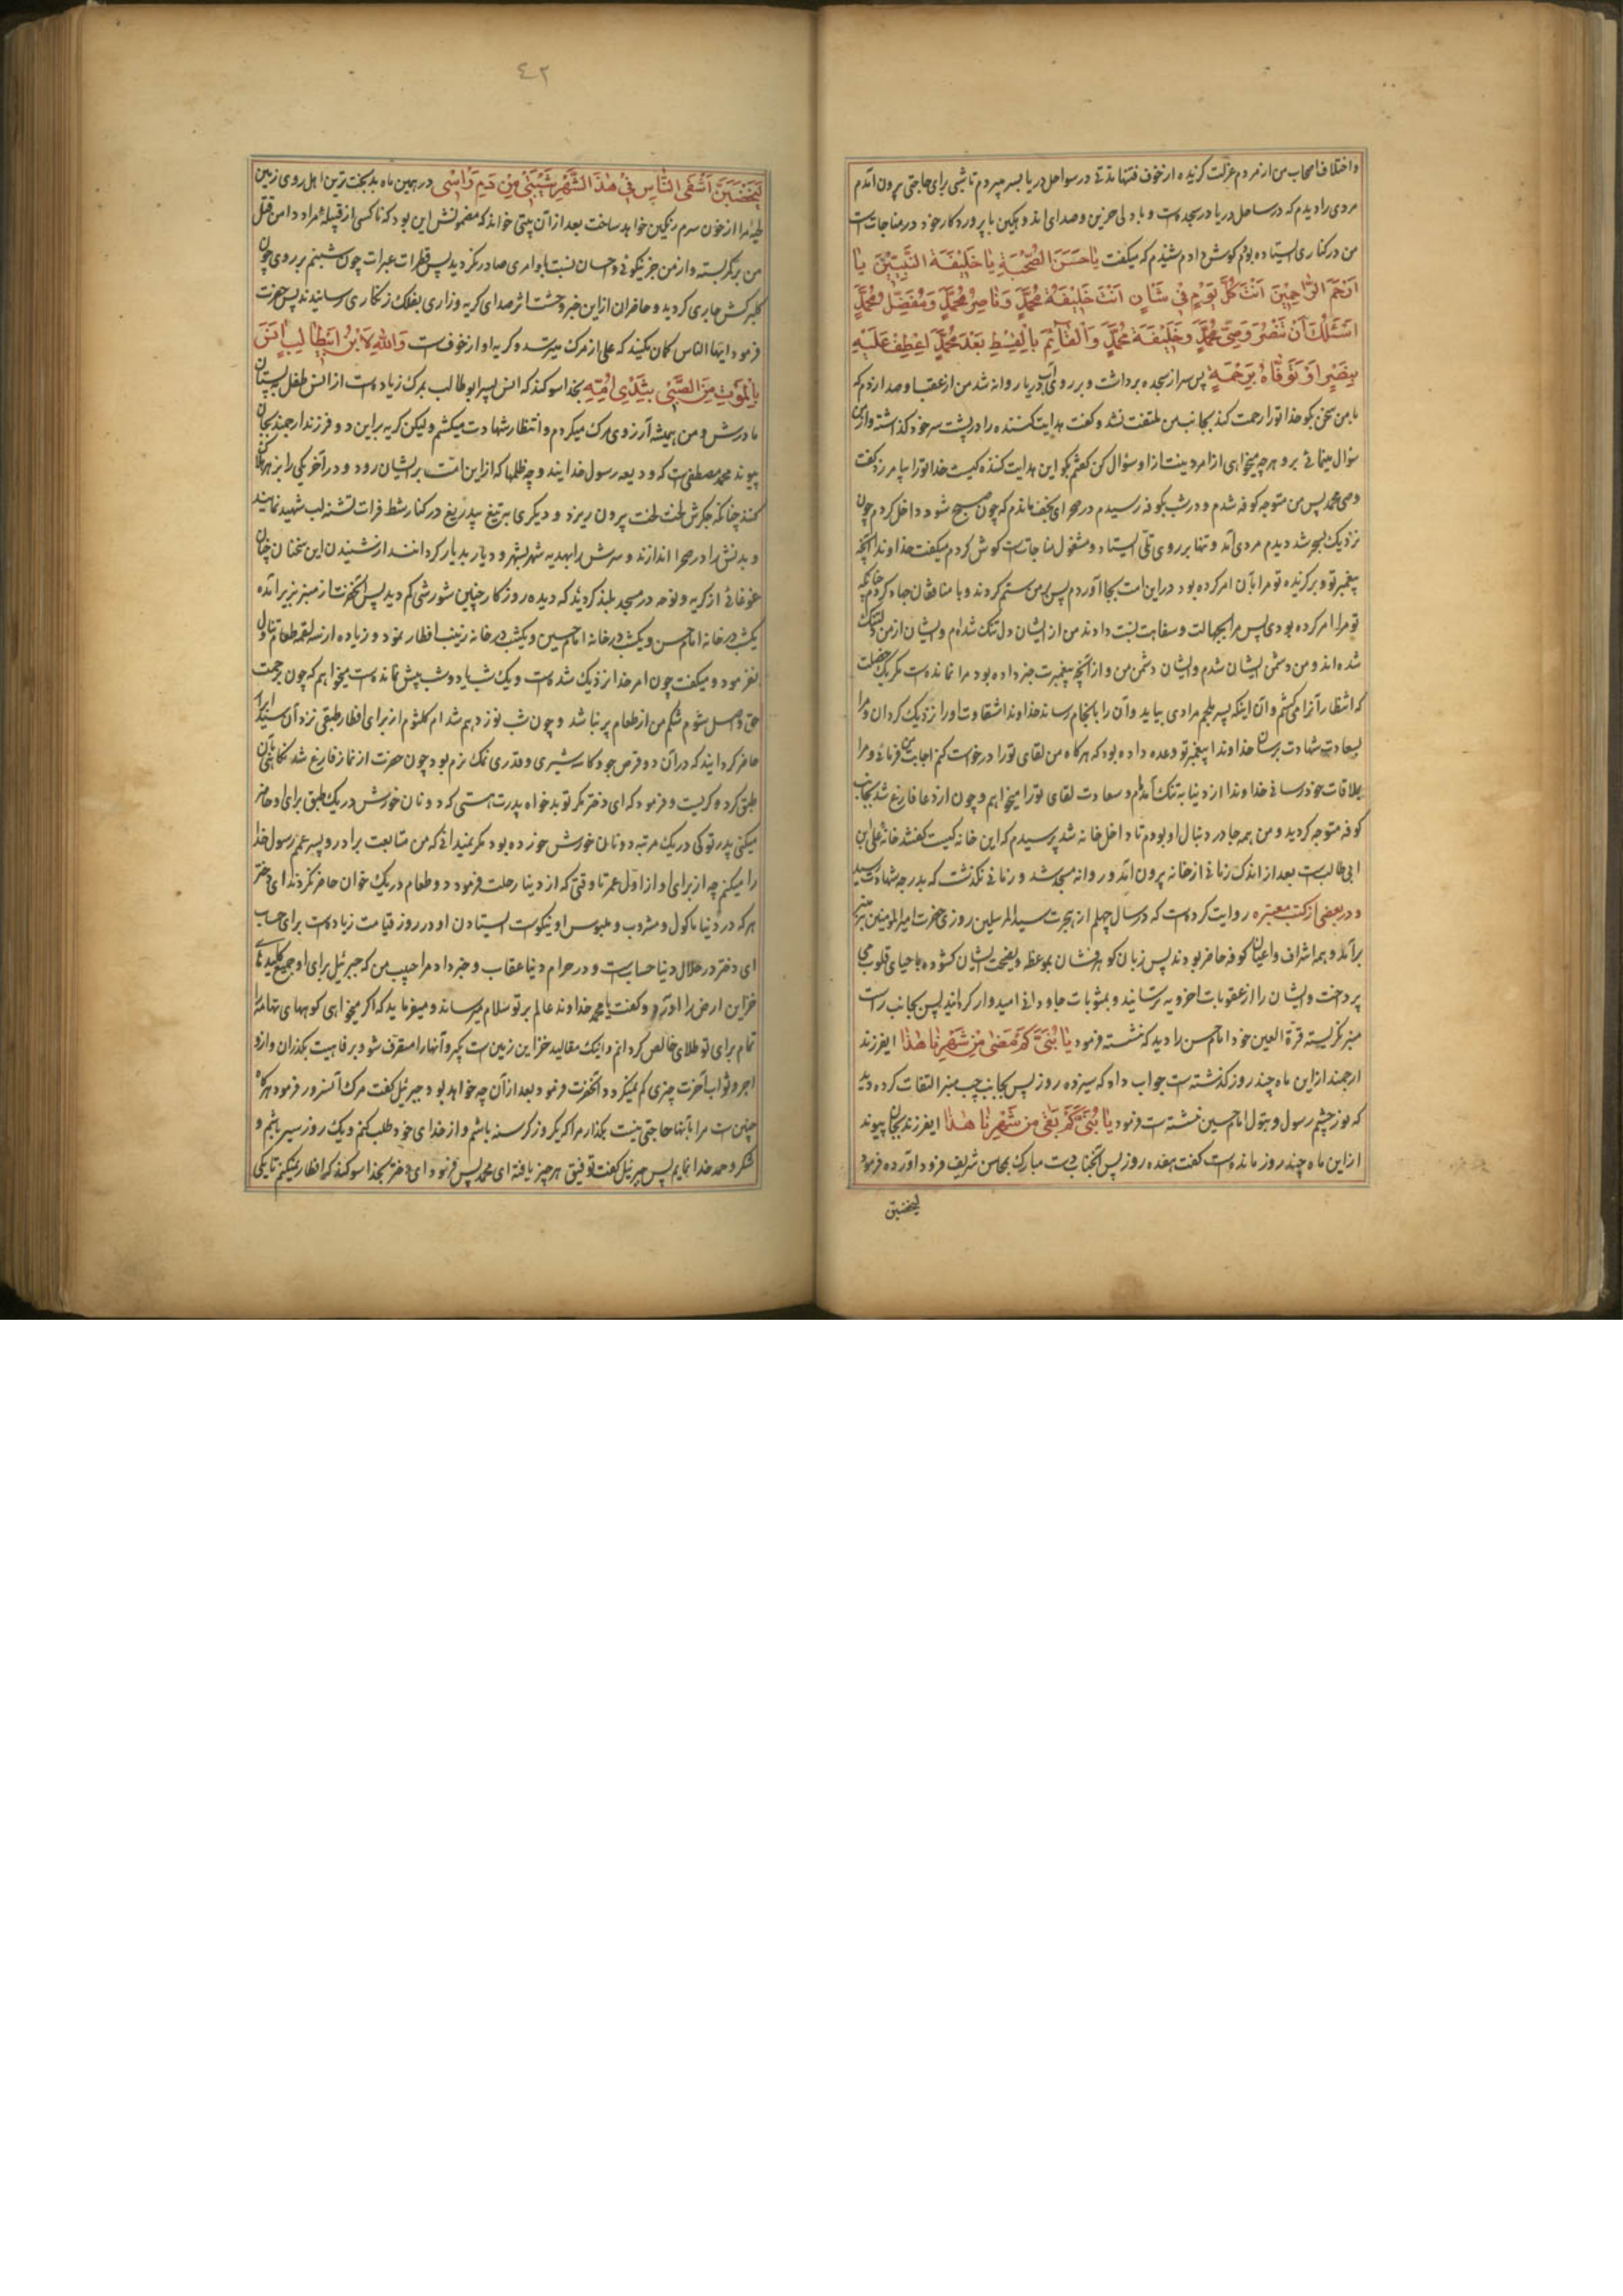 و اختلاف اصحاب من از مردم عزلت گزیده از خوف فتنها مدتی در سواحل دریا بسر میبردم تا شبی برای حاجتی بیرون آمدم
مردی را دیدم که در ساحل دریا در سجده است و با دلی حزین و صدای اندوهگین با پروردکار خود در مناجات است
من در کناری ایستاده بودم کوش دادم شنیدم که میکفت یا حسن الصحبة یا خلیفة النبیین یا
ارحم الراحمین انت کل یوم فی شان انت خلیفة محمد و ناصر محمد و مفضل محمد
اسئلک ان تنصر وصی محمد و خلیفة محمد و القائم بالقسط بعد محمد اعطف علیه
بنصر او توفاه برحمة پس سر از سجده برداشت و بر روی آب دریا روانه شد من از عقب او صدا زدم که
با من سخن بکو خدا تو را رحمت کند بجانب من ملتفت نشد و کفت هدایت کننده را در پشت سر خود کذاشته و از من
سؤال مینمائی برو هر چه میخواهی از امر دینت از او سؤال کن کفتم بکو این هدایت کننده کیست خدا تو را بیامرزد کفت
وصی محمد پس من متوجه کوفه شدم و در شب بکوفه رسیدم در صحرای نجف ماندم که چون صبح شود داخل کردم چون
نزدیک بسحر شد دیدم مردی آمد و تنها بر روی تلی ایستاد و مشغول مناجات است کوش کردم میکفت خداوندا آنچه
پیغمبر تو و برکزیده تو مرا بآن امر کرده بود در این امت بجا آوردم پس بر من ستم کردند و با منافقان جهاد کردم چنانکه
تو مرا امر کرده بودی پس مرا بجهالت و سفاهت نسبت دادند من از ایشان دل تنک شده‌ام و ایشان از من دلتنک
شده اند و من دشمن ایشان شدم و ایشان دشمن من و از آنچه پیغمبرت خبر داده بود مرا نمانده است مکر یک خصلت
که انتظار آنرا میکشم و آن اینکه پسر ملجم مرادی بیاید و آن را بانجام رساند خداوندا شقاوت او را نزدیک کردان و مرا
بسعادت شهادت برسان خداوندا پیغمبر تو وعده داده بود که هر کاه من لقای تو را درخواست کنم اجابت من فرمائی و مرا
بملاقات خود رسانی خداوندا از دنیا به تنک آمده‌ام و سعادت لقای تو را میخواهم و چون از دعا فارغ شد بجانب
کوفه متوجه کردید و من همه جا در دنبال او بودم تا داخل خانه شد پرسیدم که این خانه کیست کفتند خانه علی ابن
ابی طالب است بعد از اندک زمانی از خانه بیرون آمد و روانه مسجد شد و زمانی نکذشت که بدرجه شهادت رسید
و در بعضی از کتب معتبره روایت کرده است که در سال چهلم از هجرت سید المرسلین روزی حضرت امیر المومنین بمنبر
برآمد و همه اشراف و اعیان کوفه حاضر بودند پس زبان کوهر فشان بموعظه و نصیحت ایشان کشوده باحیای قلوب می
پرداخت و ایشان را از عقوبات اخرویه ترسانید و بمثوبات جاودانی امیدوار کردانید پس بجانب راست
منبر نکریسته قرة العین خود امام حسن را دید که نشسته فرمود یا بنی کم مضی من شهرنا هذا ایفرزند
ارجمند از این ماه چند روز کذشته است جواب داد که سیزده روز پس بجانب چپ منبر التفات کرده دید
که نور چشم رسول و بتول امام حسین نشسته است فرمود یا بنی کم بقی من شهرنا هذا ایفرزند بجان پیوند
از این ماه چند روز مانده است کفت هفده روز پس آنجناب دست مبارک بمحاسن شریف فرود آورده فرمود
لیخضبن
٤٢
لیخضبن اشقی الناس فی هذا الشهر شیبتی من دم راسی در همین ماه بدبخت ترین اهل روی زمین
لحیه مرا از خون سرم رنکین خواهد ساخت بعد از آن بیتی خواند که مضمونش این بود که ناکسی از قبیله مراد دامن قتل
من بر کمر بسته و از من جز نیکوئی و احسان نسبت باو امری صادر نکردید پس قطرات عبرات چون شبنم بر روی چون
کلبرکش جاری کردید و حاضران از این خبر وحشت اثر صدای کریه و زاری بفلک زنکاری رسانیدند پس حضرت
فرمود ایها الناس کمان نکنید که علی از مرک میترسد و کریه او از خوف است و الله لابن ابیطالب انس
بالموت من الصبی بثدی امه بخدا سوکند که انس پسر ابو طالب بمرک زیاده است از انس طفل بپستان
مادرش و من همیشه آرزوی مرک میکردم و انتظار شهادت میکشم ولیکن کریه بر این دو فرزند ارجمند بجان
پیوند محمد مصطفی است که ودیعه رسول خدایند و چه ظلمها که از این امت بر ایشان رود و در آخر یکی را بزهر هلاک
کنند چنانکه جکرش لخت لخت بیرون ریزد و دیکری به تیغ بیدریغ در کنار شط فرات تشنه لب شهید نمایند
و بدنش را در صحرا اندازند و سرش را بهدیه شهر بشهر و دیار بدیار کردانند از شنیدن این سخنان چنان
غوغائی از کریه و نوحه در مسجد بلند کردید که دیده روزکار چنین شورشی کم دید پس آنحضرت از منبر بزیر آمده
یکشب در خانه امام حسن و یکشب در خانه امام حسین و یکشب در خانه زینب افطار نمود و زیاده از سه لقمه طعام تناول
نفرمود و میکفت چون امر خدا نزدیک شده است و یک شب یا دو شب بیش نمانده است میخواهم که چون برحمت
حق واصل شوم شکم من از طعام پر نباشد و چون شب نوزدهم شد ام کلثوم از برای افطار طبقی نزد آن سید ابرار
حاضر کردانید که در آن دو قرص جو و کاسه شیری و قدری نمک نرم بود چون حضرت از نماز فارغ شد نکاهی بآن
طبق کرد و کریست و فرمود که ای دختر مکر تو بدخواه پدرت هستی که دو نان خورش در یک طبق برای او حاضر
میکنی پدر تو کی در یک مرتبه دو نان خورش خورده بود مکر نمیدانی که من متابعت برادر و پسر عمم رسول خدا
را میکنم چه از برای او از اول عمر تا وقتی که از دنیا رحلت فرمود دو طعام در یک خوان حاضر نکردند ای دختر
هر که در دنیا ماکول و مشروب و ملبوس او نیکوست ایستادن او در روز قیامت زیاده است برای حساب
ای دختر در حلال دنیا حسابست و در حرام دنیا عقاب و خبر داد مرا حبیب من که جبرئیل برای او جمیع کلیدهای
خزاین ارض را آورد و کفت یا محمد خداوند عالم بر تو سلام میرساند و میفرماید که اکر میخواهی کوههای تهامه را
تمام برای تو طلای خالص کردانم و اینک مقالید خزاین زمین است بکیر و آنها را متصرف شو و برفاهیت بکذران و از
اجر و ثواب آخرت چیزی کم نمیکردد آنحضرت فرمود بعد از آن چه خواهد بود جبرئیل کفت مرک آنسرور فرمود هر کاه
چنین است مرا بآنها حاجتی نیست بکذار مرا که یکروز کرسنه باشم و از خدای خود طلب کنم و یک روز سیر باشم و
شکر و حمد خدا نمایم پس جبرئیل کفت توفیق هر چیز یافته ای محمد پس فرمود ای دختر بخدا سوکند که افطار نمیکنم تا یکی